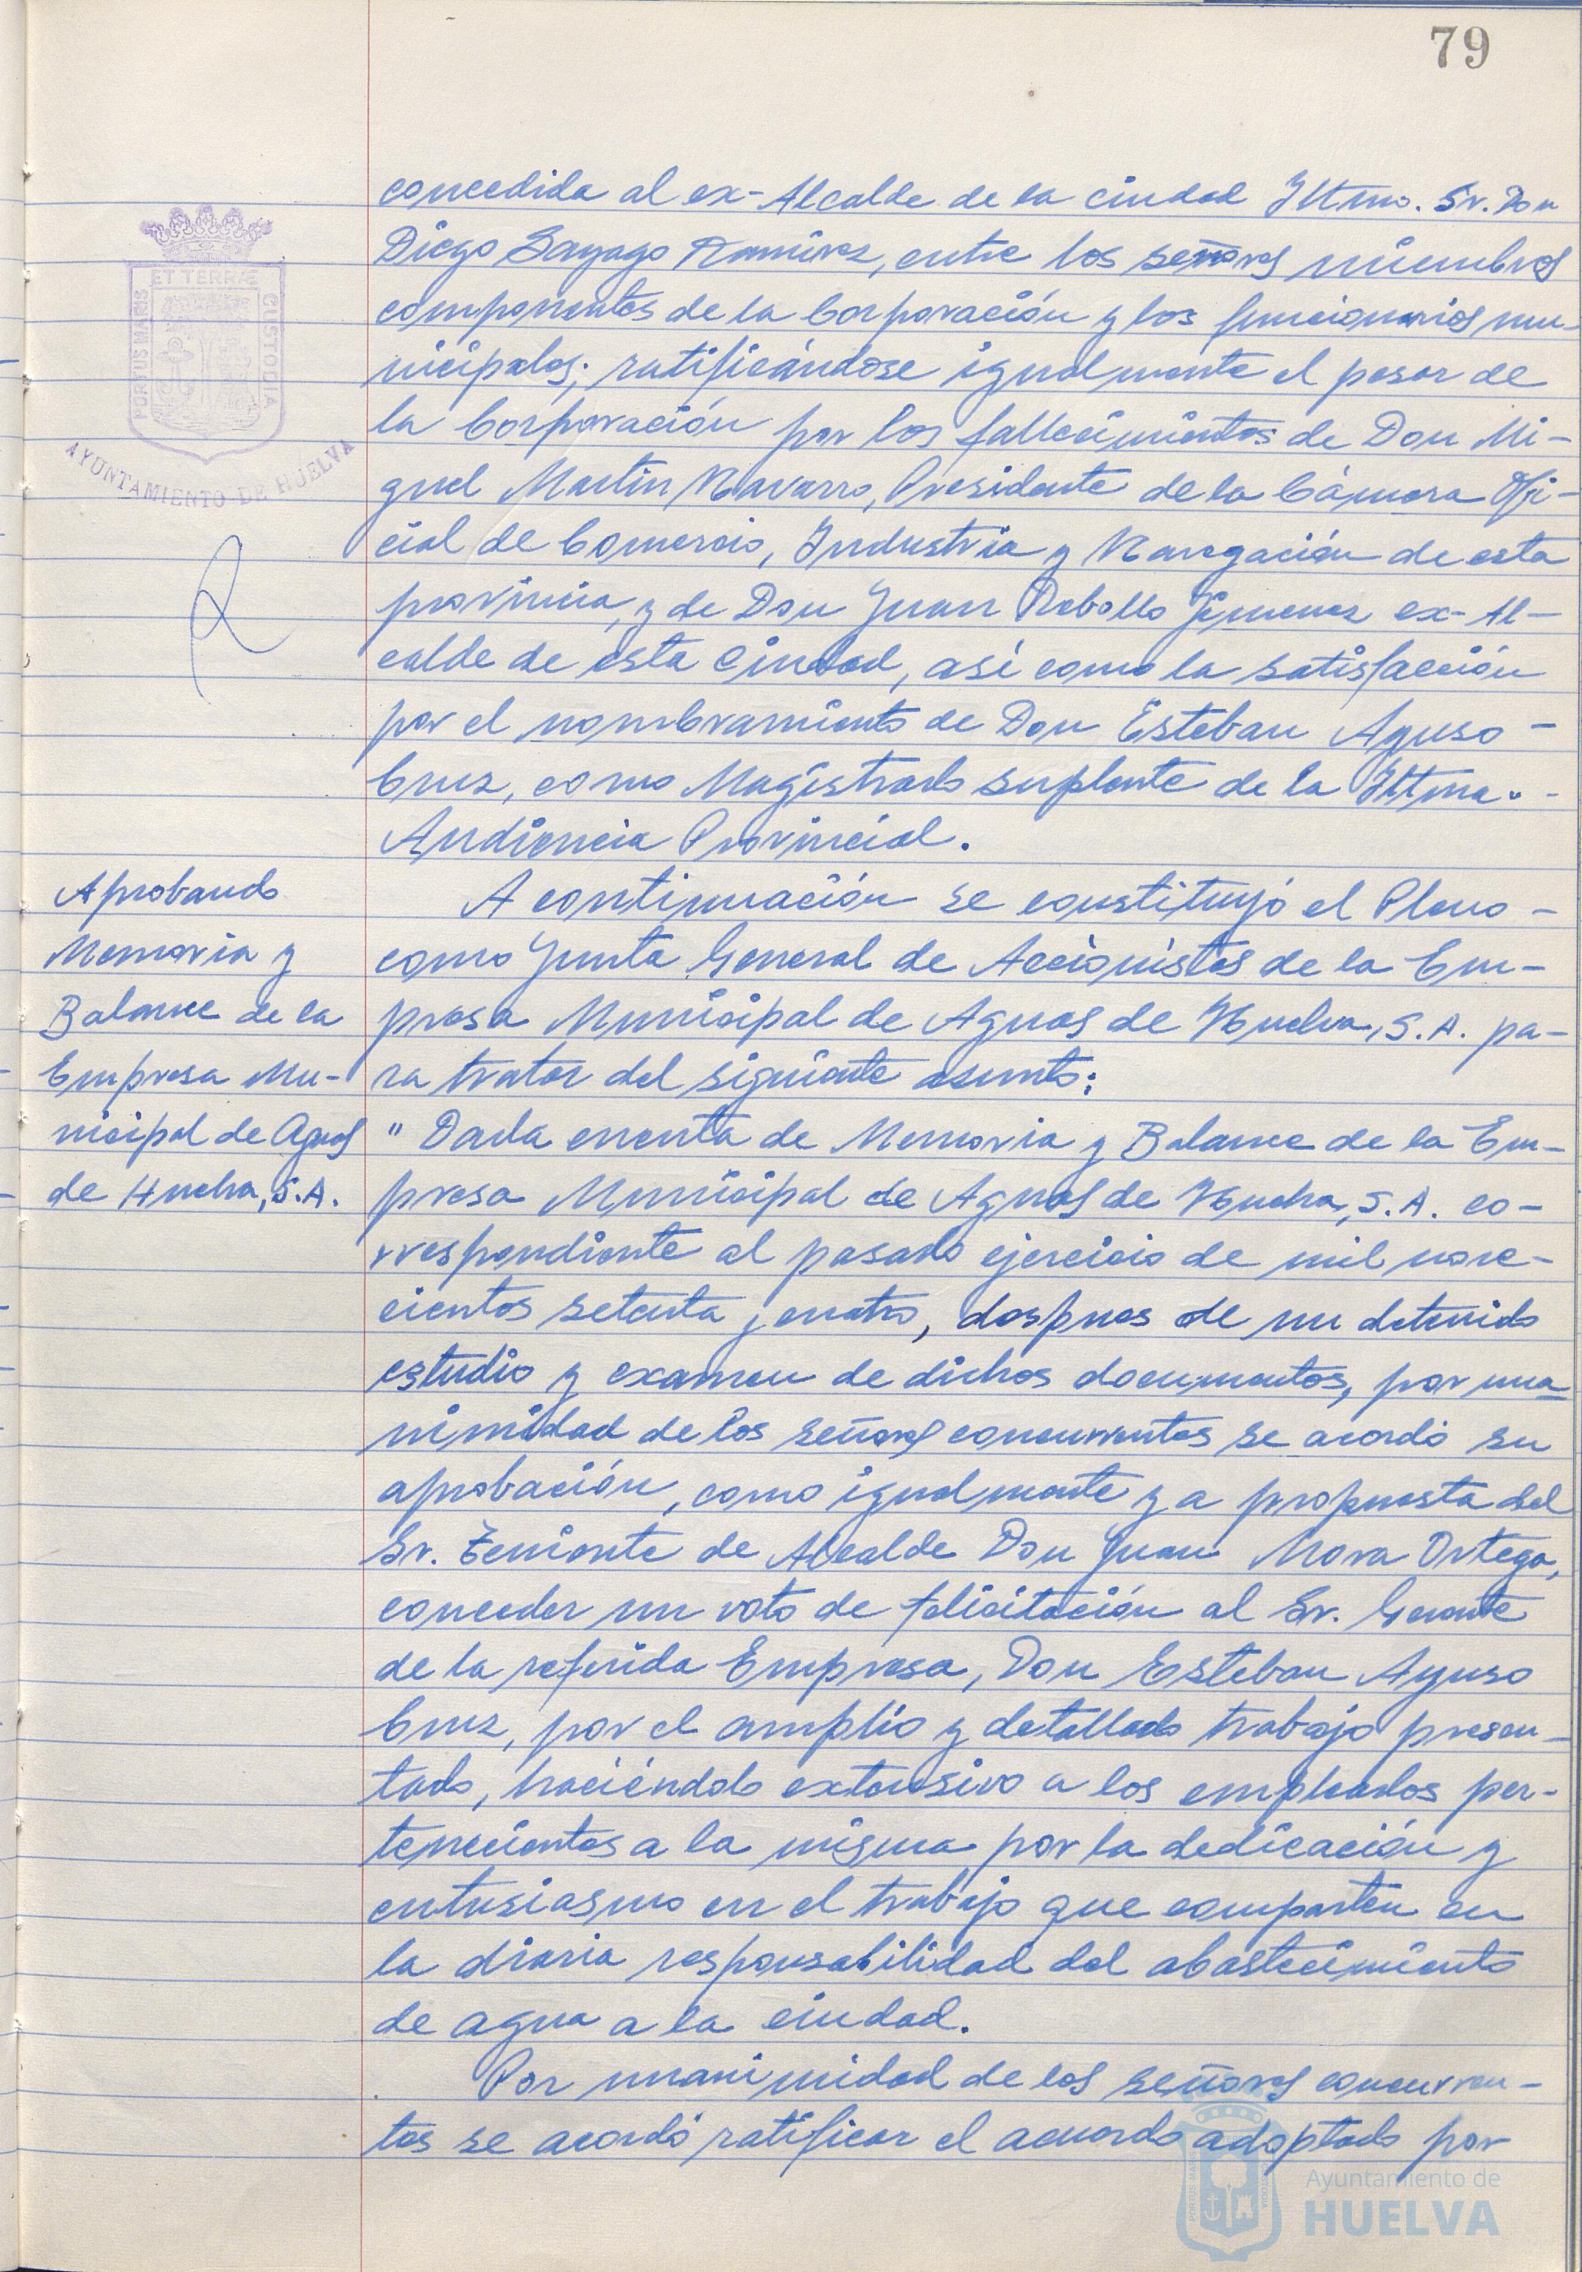 79
concedida al ex-Alcalde de la ciudad Iltmo. Sr. Don
Diego Sayago Ramírez, entre los señores miembros
componentes de la Corporación y los funcionarios mu-
nicipales; ratificándose igualmente el pesar de
la Corporación por los fallecimientos de Don Mi-
guel Martin Navarro, Presidente de la Cámara Ofi-
cial de Comercio, Industria y Navegación de esta
provincia, y de Don Juan Rebollo Jimenez ex-Al-
calde de esta Ciudad, así como la satisfacción
por el nombramiento de Don Esteban Ayuso -
Cruz, como Magistrado suplente de la Iltma. -
Audiencia Provincial.
Aprobando
Memoria y
Balance de la
Empresa Mu-
nicipal de Aguas
de Huelva, S.A.
A continuación se constituyó el Pleno -
como Junta General de Accionistas de la Em-
presa Municipal de Aguas de Huelva, S.A. pa-
ra tratar del siguiente asunto:
" Dada cuenta de Memoria y Balance de la Em-
presa Municipal de Aguas de Huelva, S.A. co-
rrespondiente al pasado ejercicio de mil nove-
cientos setenta y cuatro, despues de un detenido
estudio y examen de dichos documentos, por una
nimidad de los señores concurrentes se acordó su
aprobación, como igualmente y a propuesta del
Sr. Teniente de Alcalde Don Juan Mora Ortega,
conceder un voto de felicitación al Sr. Gerente
de la referida Empresa, Don Esteban Ayuso
Cruz, por el amplio y detallado trabajo presen-
tado, haciéndolo extensivo a los empleados per-
tenecientes a la misma por la dedicación y
entusiasmo en el trabajo que comparten en
la diaria responsabilidad del abastecimiento
de agua a la ciudad.
Por unanimidad de los señores concurren-
tes se acordó ratificar el acuerdo adoptado por
PORTUS MARIS ET TERRÆ CUSTODIA
AYUNTAMIENTO DE HUELVA
Ayuntamiento de
HUELVA